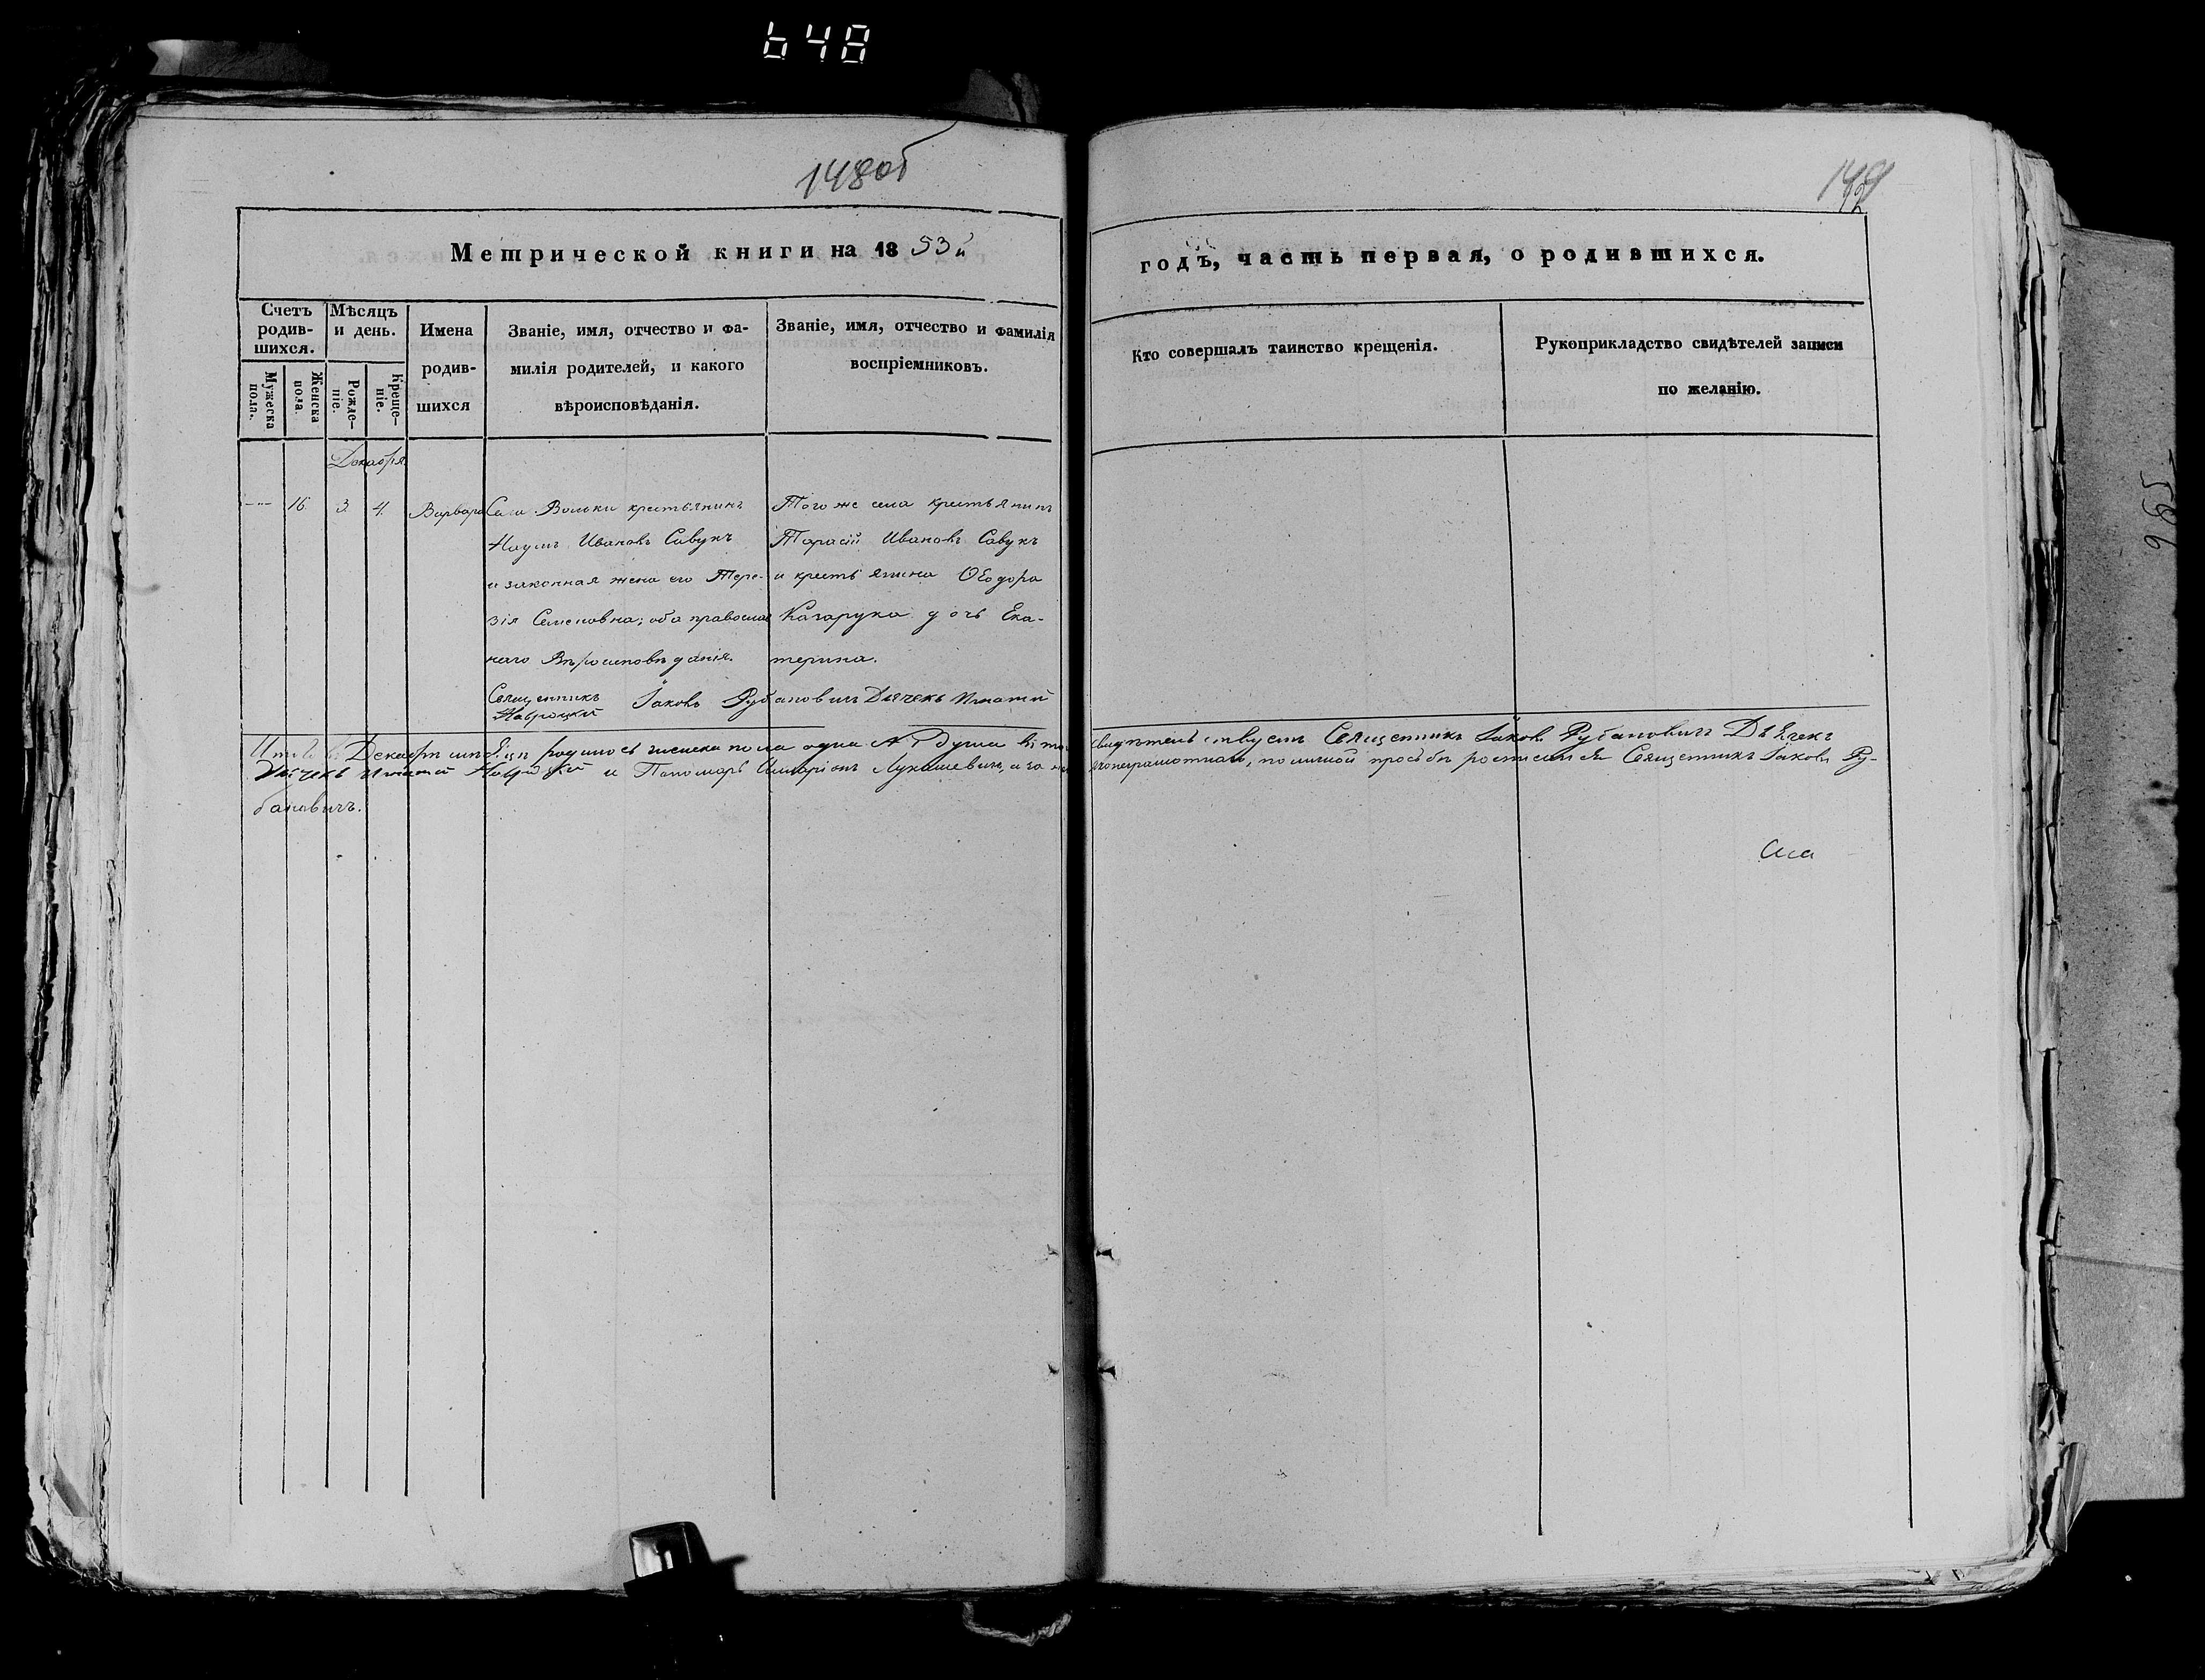 648
148об
149
Метрической книги на 1853й
годъ, часть первая, о родившихся.
Счетъ родив-шихся.
Мѣсяцъ и день.
Имена родив-шихся
Званіе, имя, отчество и фа-
милія родителей, и какого
вѣроисповѣданія.
Званіе, имя, отчество и фамилія
воспріемниковъ.
Кто совершалъ таинство крещенія.
Рукоприкладство свидѣтелей записи
по желанію.
Мужеска пола.
Женска пола.
Рожде-ніе.
Креще-ніе.
Декабря
16. 3. 4. Варвара
Села Вольки крестьянинъ
Наумъ Ивановъ Савукъ
и законная жена его Тере-
зія Семеновна; оба православ
наго Вѣроисповѣданія.
Того же села крестьянинъ
Тарасій Ивановъ Савукъ
и крестьянина Ѳеодора
дочь Ека-
терина.
Священникъ Іаковъ Рубановичъ Дьячекъ Игнатій
Наврощкій
Итого въ Декабрѣ мѣсяцѣ родилось женска пола одна 1 душа въ томъ
свидѣтельствуетъ Священникъ Іаковъ Рубановичъ Дьячекъ
Дьячекъ Игнатій и Пономарь Лукашевичъ, а за не
неграмотнаго, по личной просьбѣ росписался Священникъ Іаковъ Ру-
бановичъ.
966